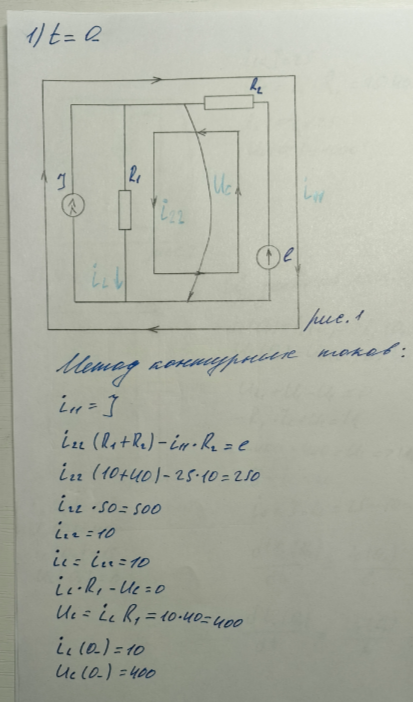 1) t = 0-
R₂
J
R₁
i₂₂
Uc
i₁₁
iL
e
рис. 1
Метод контурных токов:
i₁₁ = J
i₂₂ (R₁+R₂) - i₁₁·R₂ = e
i₂₂ (10+40) - 25·10 = 250
i₂₂ · 50 = 500
i₂₂ = 10
iL = i₂₂ = 10
iL·R₁ - Uc = 0
Uc = iL R₁ = 10·40 = 400
iL (0-) = 10
Uc (0-) = 400